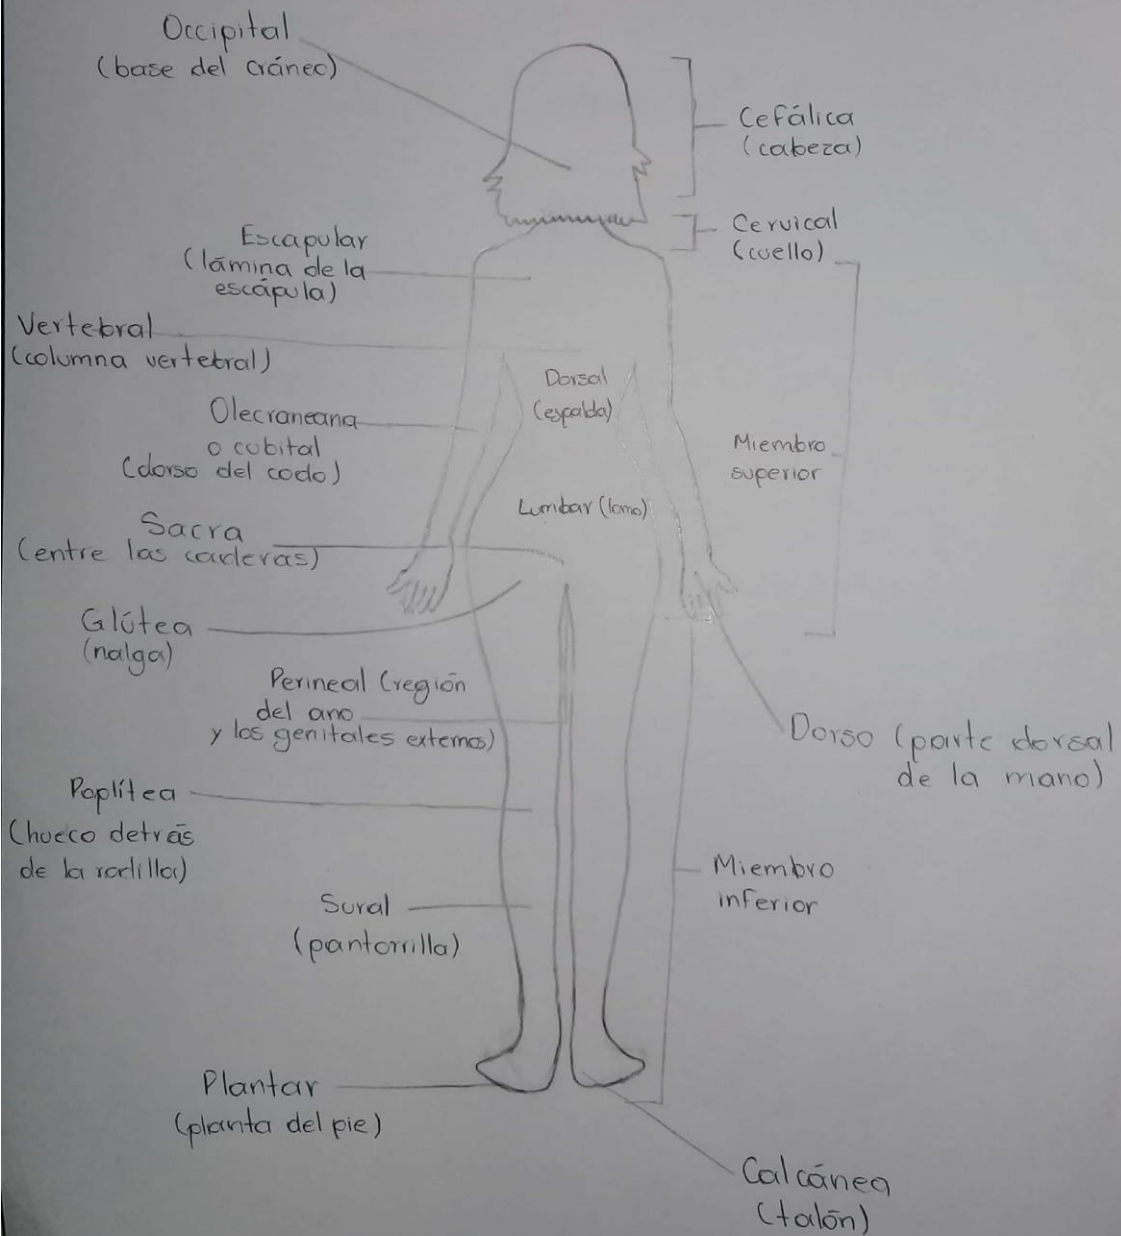 Occipital
(base del cráneo)
Cefálica
(cabeza)
Cervical
(cuello)
Escapular
(lámina de la
escápula)
Vertebral
(columna vertebral)
Dorsal
(espalda)
Olecraneana
o cubital
(dorso del codo)
Miembro
superior
Lumbar (lomo)
Sacra
(entre las caderas)
Glútea
(nalga)
Perineal (región
del ano
y los genitales externos)
Dorso (parte dorsal
de la mano)
Poplítea
(hueco detrás
de la rodilla)
Miembro
inferior
Sural
(pantorrilla)
Plantar
(planta del pie)
Calcánea
(talón)